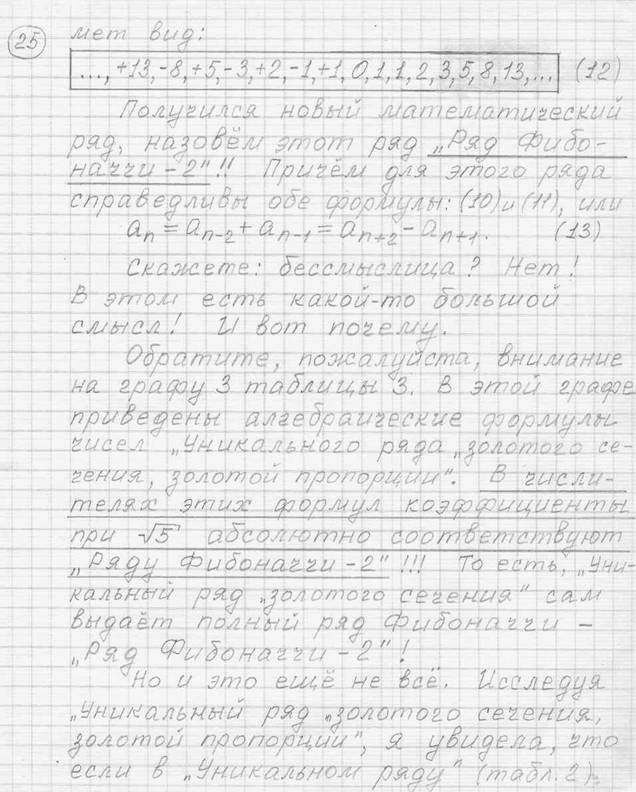 25
мет вид:
..., +13, -8, +5, -3, +2, -1, +1, 0, 1, 1, 2, 3, 5, 8, 13, ... (12)
Получился новый математический
ряд, назовём этот ряд „Ряд Фибо-
наччи-2"!! Причём для этого ряда
справедливы обе формулы: (10) и (11), или
aₙ = aₙ₋₂ + aₙ₋₁ = aₙ₊₂ - aₙ₊₁. (13)
Скажете: бессмыслица? Нет!
В этом есть какой-то большой
смысл! И вот почему.
Обратите, пожалуйста, внимание
на графу 3 таблицы 3. В этой графе
приведены алгебраические формулы
чисел „Уникального ряда „золотого се-
чения, золотой пропорции". В числи-
телях этих формул коэффициенты
при √5 абсолютно соответствуют
„Ряду Фибоначчи-2"!!! То есть, „Уни-
кальный ряд „золотого сечения" сам
выдаёт полный ряд Фибоначчи -
„Ряд Фибоначчи-2"!
Но и это ещё не всё. Исследуя
„Уникальный ряд „золотого сечения,
золотой пропорции", я увидела, что
если в „Уникальном ряду" (табл. 2)